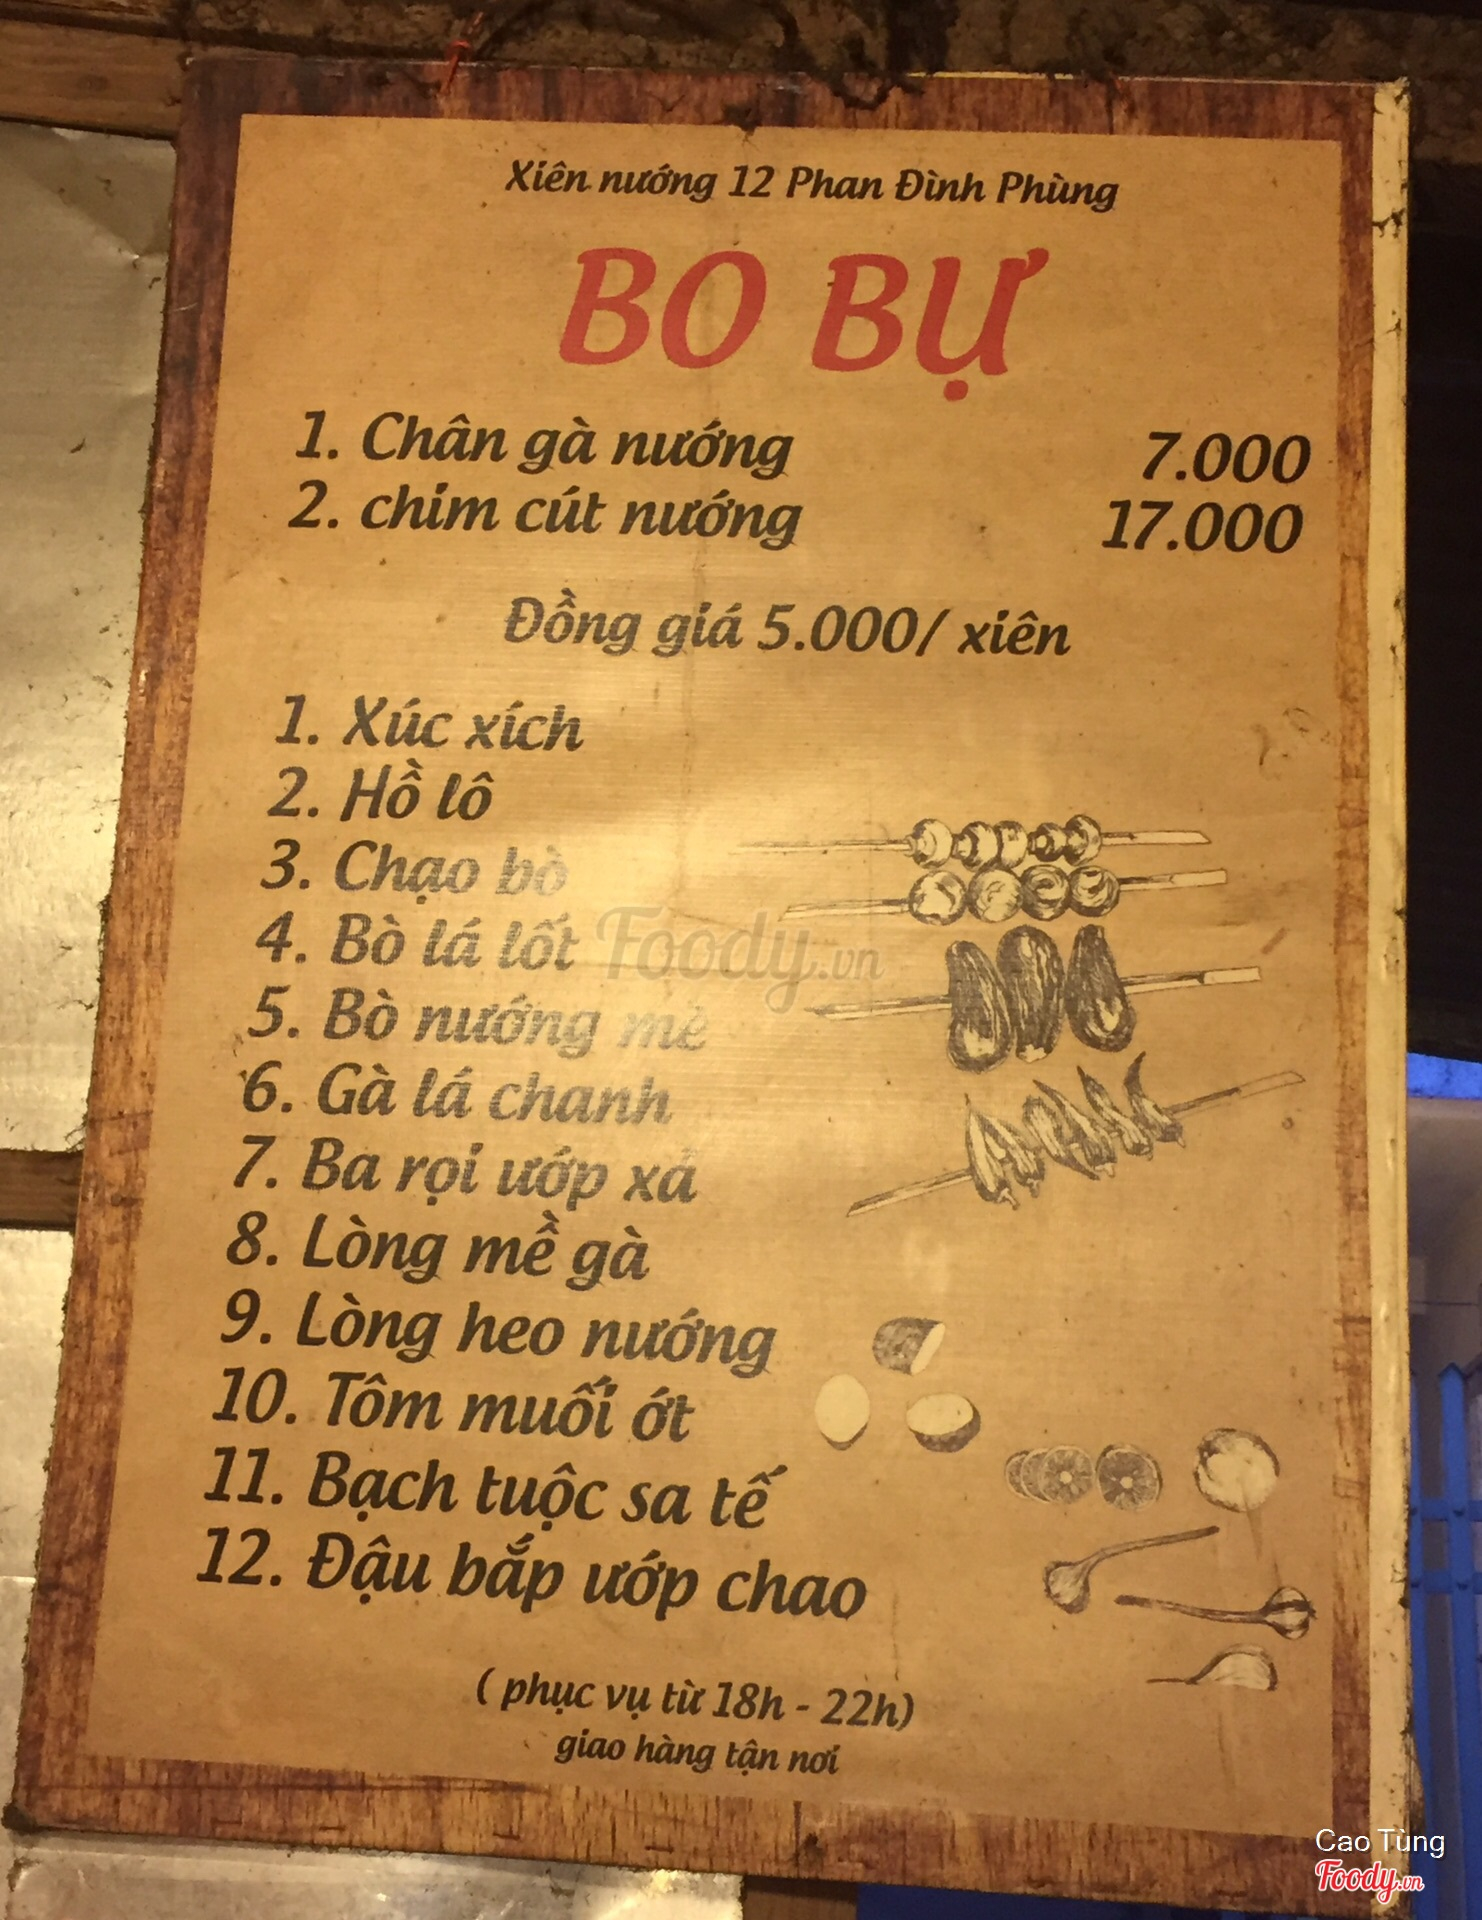 Xiên nướng 12 Phan Đình Phùng
BO BỰ
1. Chân gà nướng 7.000
2. chim cút nướng 17.000
Đồng giá 5.000/ xiên
1. Xúc xích
2. Hồ lô
3. Chạo bò
4. Bò lá lốt
Foody.vn
5. Bò nướng mè
6. Gà lá chanh
7. Ba rọi ướp xả
8. Lòng mề gà
9. Lòng heo nướng
10. Tôm muối ớt
11. Bạch tuộc sa tế
12. Đậu bắp ướp chao
( phục vụ từ 18h - 22h)
giao hàng tận nơi
Cao Tùng
Foody.vn